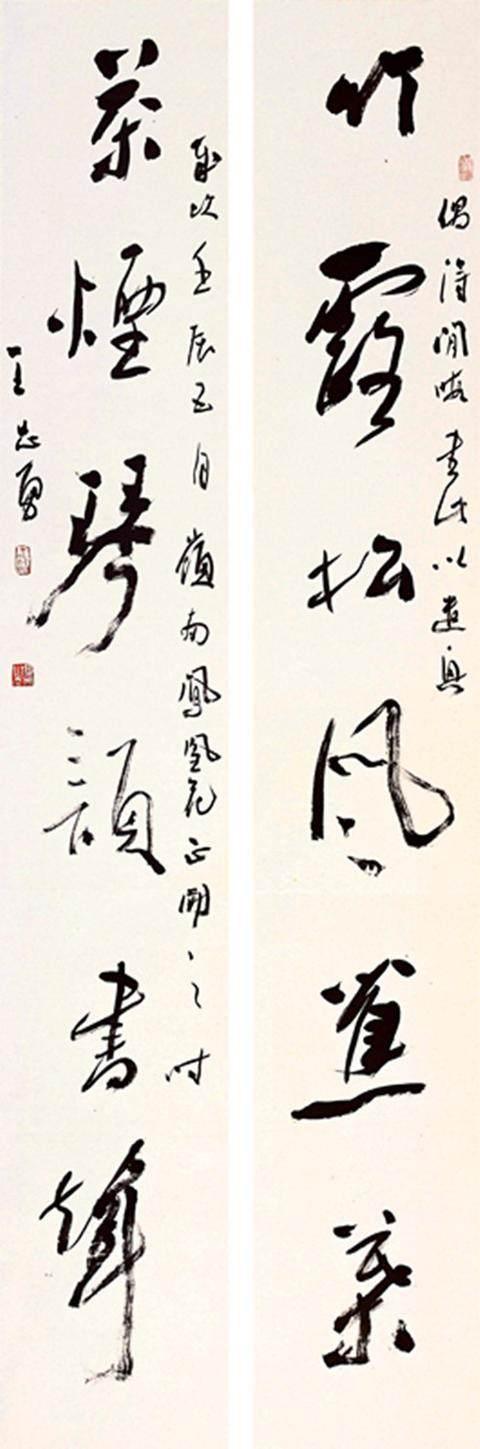 偶得閒暇書此以遣興
竹露松風蕉葉
歲次壬辰五月嶺南鳳凰花正開之時
茶煙琴韻書聲
王勇